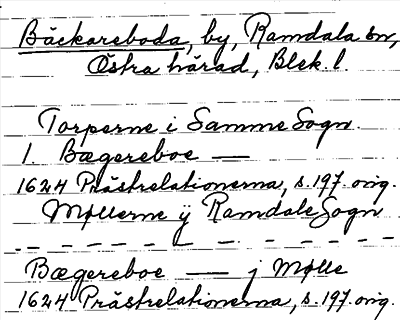 Bäckareboda, by, Ramdala sn,
Östra härad, Blek. l.
Torperne i Samme Sogn.
1. Bægereboe —
1624 Prästrelationerna, s. 197. orig.
Møllerne ÿ Ramdale Sogn
Bægereboe — j Mølle
1624 Prästrelationerna, s. 197. orig.